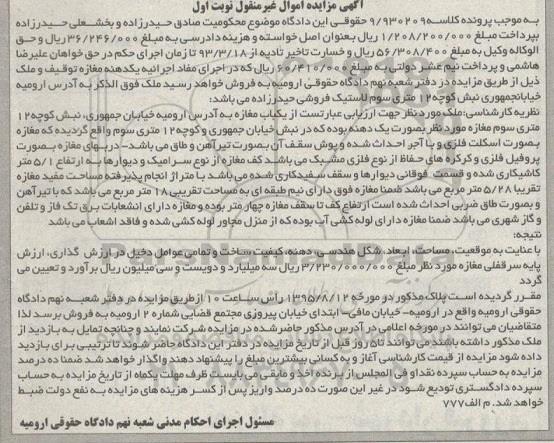 آگهی مزایده اموال غیرمنقول نوبت اول
به موجب پرونده کلاسه ۹/۹۳۰۲۰۹ حقوقی این دادگاه موضوع محکومیت صادق حیدرزاده و بخشعلی حیدرزاده
بپرداخت مبلغ ۱/۲۰۸/۲۰۰/۰۰۰ ریال بعنوان اصل خواسته و هزینه دادرسی به مبلغ ۳۶/۲۴۶/۰۰۰ ریال و حق
الوکاله وکیل به مبلغ ۵۶/۳۰۸/۴۰۰ ریال و خسارت تاخیر تادیه از ۹۳/۳/۱۸ تا زمان اجرای حکم در حق خواهان علیرضا
هاشمی و پرداخت نیم عشر دولتی به مبلغ ۶۰/۴۱۰/۰۰۰ ریال که در اجرای مفاد اجرائیه یکدهنه مغازه توقیف و ملک
ذیل از طریق مزایده در دفتر شعبه نهم دادگاه حقوقی ارومیه به فروش خواهد رسید ملک فوق الذکر به آدرس ارومیه
خیابان جمهوری نبش کوچه ۱۲ متری سوم لاستیک فروشی حیدرزاده می باشد:
نظریه کارشناسی: ملک مورد نظر جهت ارزیابی عبارتست از یکباب مغازه به آدرس ارومیه خیابان جمهوری، نبش کوچه ۱۲
متری سوم مغازه مورد نظر بصورت یک دهنه بوده که در نبش خیابان جمهوری و کوچه ۱۲ متری سوم واقع گردیده که مغازه
بصورت اسکلت فلزی و با آجر احداث شده و پوش سقف آن بصورت تیرآهن و طاق می باشد- دربهای مغازه بصورت
پروفیل فلزی و کرکره های حفاظ از نوع فلزی مشبک می باشد کف مغازه از نوع سرامیک و دیوارها به ارتفاع ۱/۵ متر
کاشیکاری شده و قسمت فوقانی دیوارها و سقف سفیدکاری شده می باشد با متراژ انجام پذیرفته مساحت مفید مغازه
تقریبا ۲۸/۵ متر مربع می باشد ضمنا مغازه فوق دارای نیم طبقه ای به مساحت تقریبی ۱۸ متر مربع می باشد که با تیرآهن
و بصورت طاق ضربی احداث شده است ارتفاع کف تا سقف مغازه چهار متر بوده و مغازه دارای انشعابات برق تک فاز و تلفن
و گاز شهری می باشد ضمنا مغازه دارای لوله کشی آب بوده که از منزل مجاور لوله کشی شده و فاقد اشعاب می باشد
نتیجه:
با عنایت به موقعیت، مساحت، ابعاد، شکل هندسی، دهنه، کیفیت ساخت و تمامی عوامل دخیل در ارزش گذاری، ارزش
پایه سرقفلی مغازه مورد نظر مبلغ ۳/۲۳۰/۰۰۰/۰۰۰ ریال سه میلیارد و دویست و سی میلیون ریال برآورد و تعیین می
گردد
مقرر گردیده است پلاک مذکور در مورخه ۱۳۹۵/۸/۱۲ رأس ساعت ۱۰ از طریق مزایده در دفتر شعبه نهم دادگاه
حقوقی ارومیه واقع در ارومیه- خیابان مافی- ابتدای خیابان پیروزی مجتمع قضایی شماره ۲ ارومیه به فروش برسد لذا
متقاضیان می توانند در مورخه اعلامی در آدرس مذکور حاضر شده در مزایده شرکت نمایند و چنانچه تمایل به بازدید از
ملک مذکور داشته باشند می توانند تا ۵ روز قبل از تاریخ مزایده در دفتر این دادگاه حاضر شوند تا ترتیبی برای بازدید
داده شود مزایده از قیمت کارشناسی آغاز و به کسانی بیشترین مبلغ را پیشنهاد دهند واگذار خواهد شد ضمنا ده درصد
مزایده به حساب سپرده نقدا و فی المجلس از برنده اخذ و مابقی می بایست ظرف مهلت یکماه از تاریخ مزایده به حساب
سپرده دادگستری تودیع شود در غیر این صورت ده درصد واریز پس از کسر هزینه های مزایده به نفع دولت ضبط
خواهد شد. م الف ۷۷۷
مسئول اجرای احکام مدنی شعبه نهم دادگاه حقوقی ارومیه